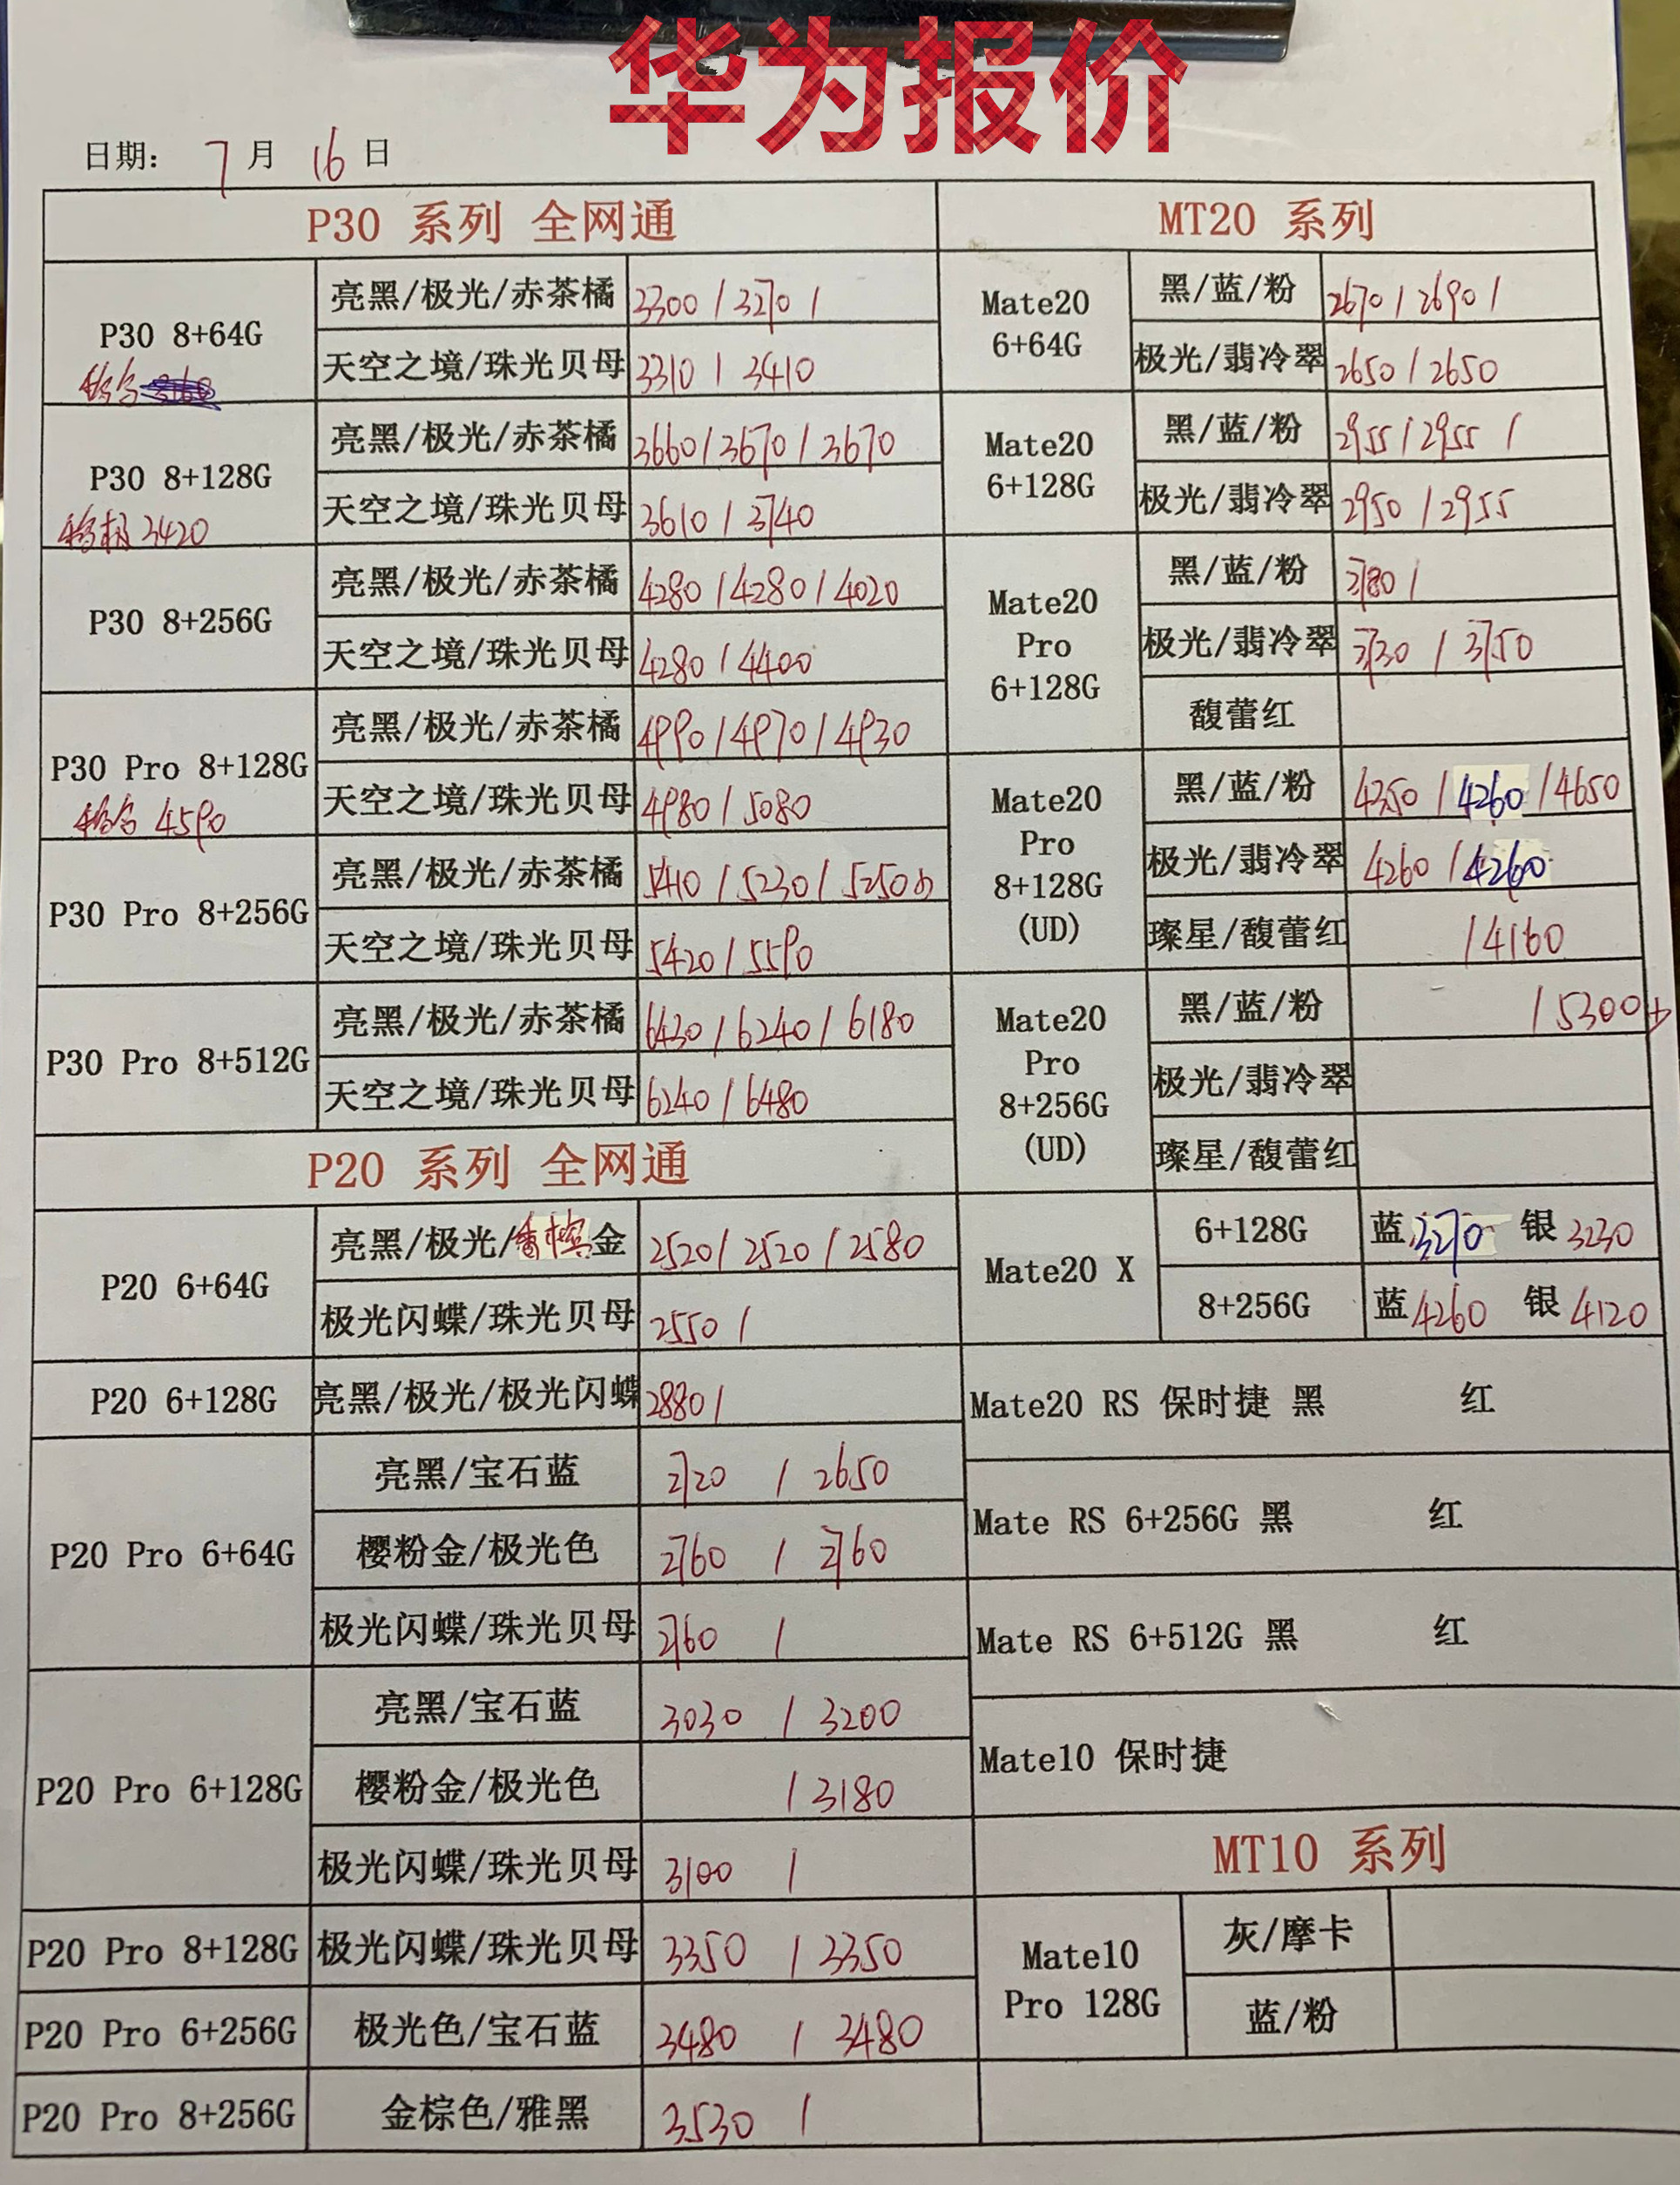 华为报价
日期： 7 月 16 日
P30 系列 全网通
P30 8+64G
亮黑/极光/赤茶橘 3300 / 3270 /
天空之境/珠光贝母 3310 / 3410
P30 8+128G
3420
亮黑/极光/赤茶橘 3660 / 3670 / 3670
天空之境/珠光贝母 3610 / 3740
P30 8+256G
亮黑/极光/赤茶橘 4280 / 4280 / 4020
天空之境/珠光贝母 4280 / 4400
P30 Pro 8+128G
4590
亮黑/极光/赤茶橘 4990 / 4970 / 4930
天空之境/珠光贝母 4980 / 5080
P30 Pro 8+256G
亮黑/极光/赤茶橘 5410 / 5230 / 5250
天空之境/珠光贝母 5420 / 5590
P30 Pro 8+512G
亮黑/极光/赤茶橘 6430 / 6240 / 6180
天空之境/珠光贝母 6240 / 6480
P20 系列 全网通
P20 6+64G
亮黑/极光/香槟金 2520 / 2520 / 2580
极光闪蝶/珠光贝母 2550 /
P20 6+128G 亮黑/极光/极光闪蝶 2880 /
P20 Pro 6+64G
亮黑/宝石蓝 2720 / 2650
樱粉金/极光色 2760 / 2760
极光闪蝶/珠光贝母 2760 /
P20 Pro 6+128G
亮黑/宝石蓝 3030 / 3200
樱粉金/极光色 / 3180
极光闪蝶/珠光贝母 3100 /
P20 Pro 8+128G 极光闪蝶/珠光贝母 3350 / 3350
P20 Pro 6+256G 极光色/宝石蓝 3480 / 3480
P20 Pro 8+256G 金棕色/雅黑 3530 /
MT20 系列
Mate20
6+64G
黑/蓝/粉 2670 / 2690 /
极光/翡冷翠 2650 / 2650
Mate20
6+128G
黑/蓝/粉 2955 / 2955 /
极光/翡冷翠 2950 / 2955
Mate20
Pro
6+128G
黑/蓝/粉 3780 /
极光/翡冷翠 3730 / 3750
馥蕾红
Mate20
Pro
8+128G
(UD)
黑/蓝/粉 4350 / 4260 / 4650
极光/翡冷翠 4260 / 4260
璨星/馥蕾红 / 4160
Mate20
Pro
8+256G
(UD)
黑/蓝/粉 / 5300
极光/翡冷翠
璨星/馥蕾红
Mate20 X
6+128G 蓝 3270 银 3230
8+256G 蓝 4260 银 4120
Mate20 RS 保时捷 黑 红
Mate RS 6+256G 黑 红
Mate RS 6+512G 黑 红
Mate10 保时捷
MT10 系列
Mate10
Pro 128G
灰/摩卡
蓝/粉